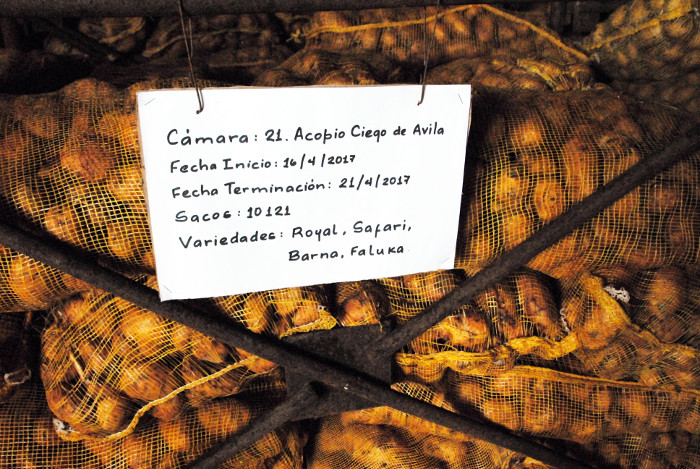 Cámara: 21. Acopio Ciego de Avila
Fecha Inicio: 16/4/2017
Fecha Terminación: 21/4/2017
Sacos: 10121
Variedades: Royal, Safari,
Barna, Faluka